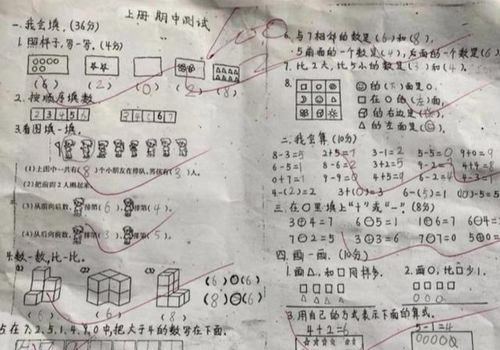 上册 期中测试
一.我会填。(36分)
1.照样子,写一写。(4分)
(6) (2) (0) (2) (8)
2.按顺序填数
2 3 4 5 6
3.看图填一填。
(1)上图中一共有(8)个小朋友在排队,
(2)把前面2人圈起来。
(3)从前向后数, 排第(6), 排第(4)。
(4)从后向前数, 排第(3), 排第(5)。
4.数一数,比一比。
(6) (6)
(8) (6)
在7、2、5、1、4、8、0中,把大于4的数写在下面。
6.与7相邻的数是(6)和(8)。
5前面的一个数是(4),后面的一个数是(6)
7.比2大,比5小的数是(3)和(4)。
8.
的(下)面是○.
□在○的(左)面.
的右边是
△的左面是
二.我会算(10分)
8-3=5 2+5=7 3-1=2 5-5=0 9+0=9
6-5=1 8-6=2 3+2=5
0+7=7 9-9=0 4+5=9 6-2=4
4-(2)=2 3+(0)=3 6-(5)=1
三.在○里填上“+”或“-”(8分)
3+4=7 6-5=1 1+6=7
7-2=5 3+3=6 7-7=0
四.画一画.(10分)
1.画△,和□同样多. 2.画○,比□少1.
□□□□ □□□□
△△△△ ○○○
3.用自己的方式表示下面的算式。
4+2=6 5-1=4